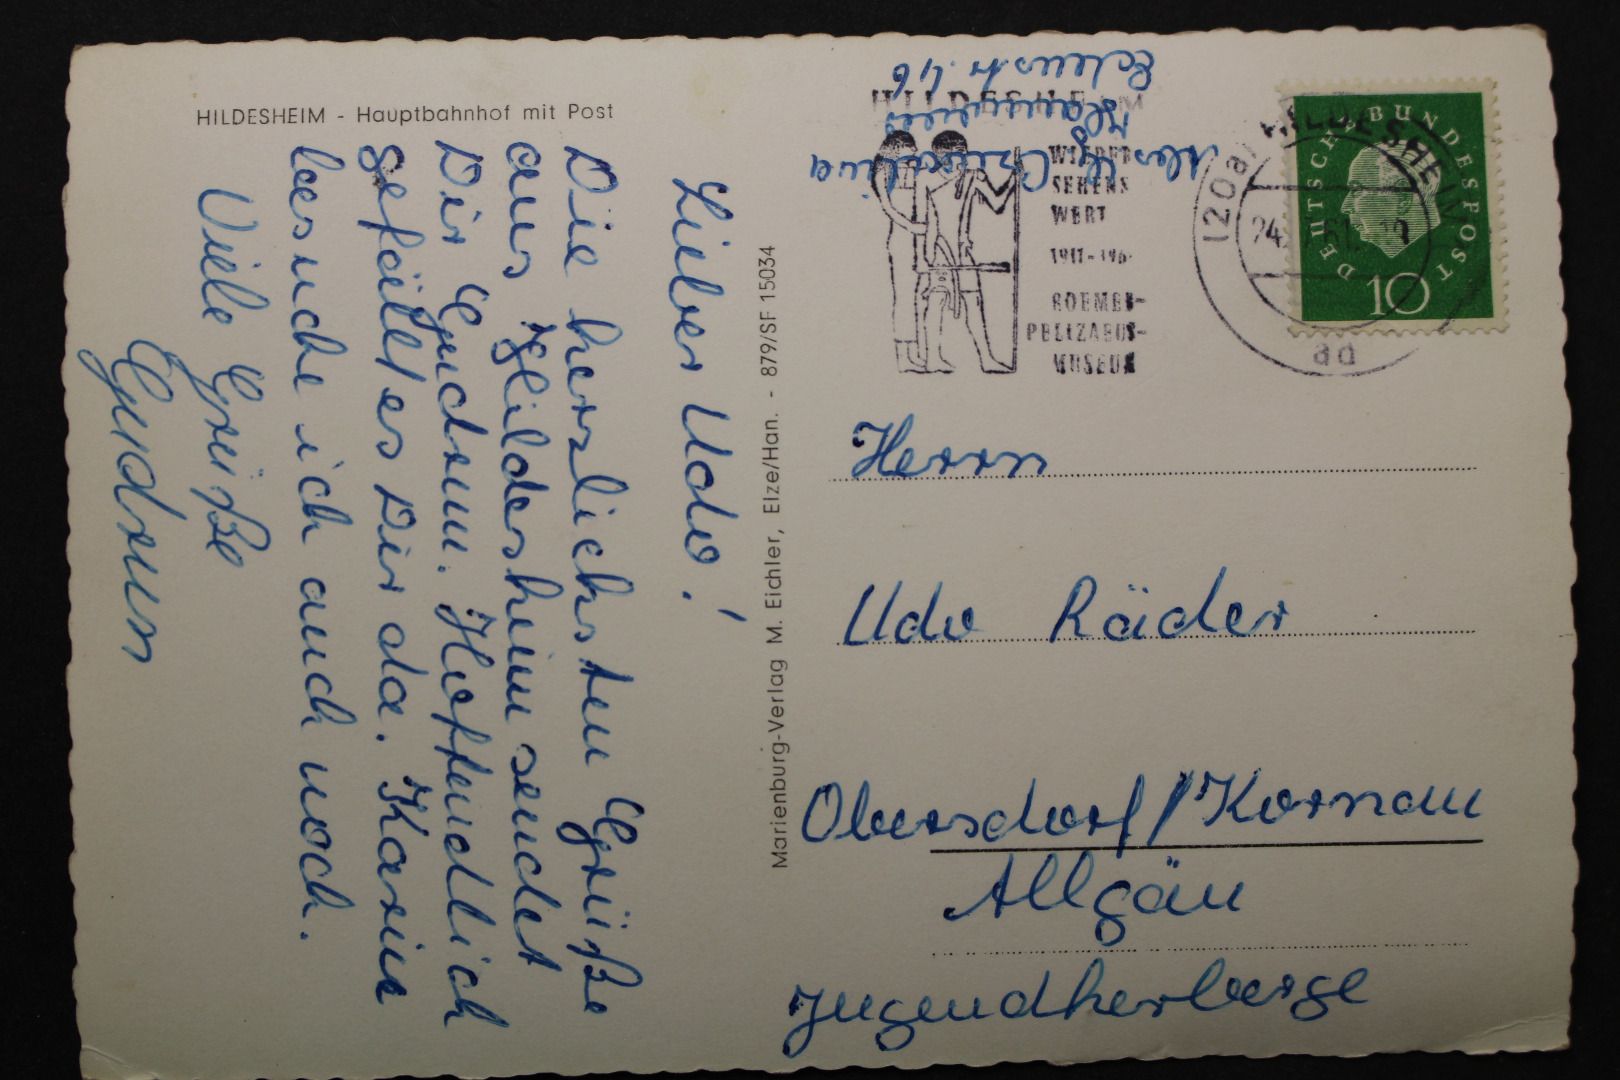 HILDESHEIM - Hauptbahnhof mit Post
Lieber Udo!
Die herzlichsten Grüße
aus Hildesheim sendet
Dir Gudrun. Hoffendlich
gefällt es Dir da. Karin
besuche ich auch noch.
Viele Grüße
Gudrun
Marienburg-Verlag M. Eichler, Elze/Han. - 879/SF 15034
HILDESHEIM
WIEDER
SEHENS
WERT
1911-196
ROEMER-
PELIZAEUS-
MUSEUM
(20a) HILDESHEIM
24.
ad
DEUTSCHE BUNDESPOST
10
Herrn
Udo Räder
Obersdorf/Kornau
Allgäu
Jugendherberge